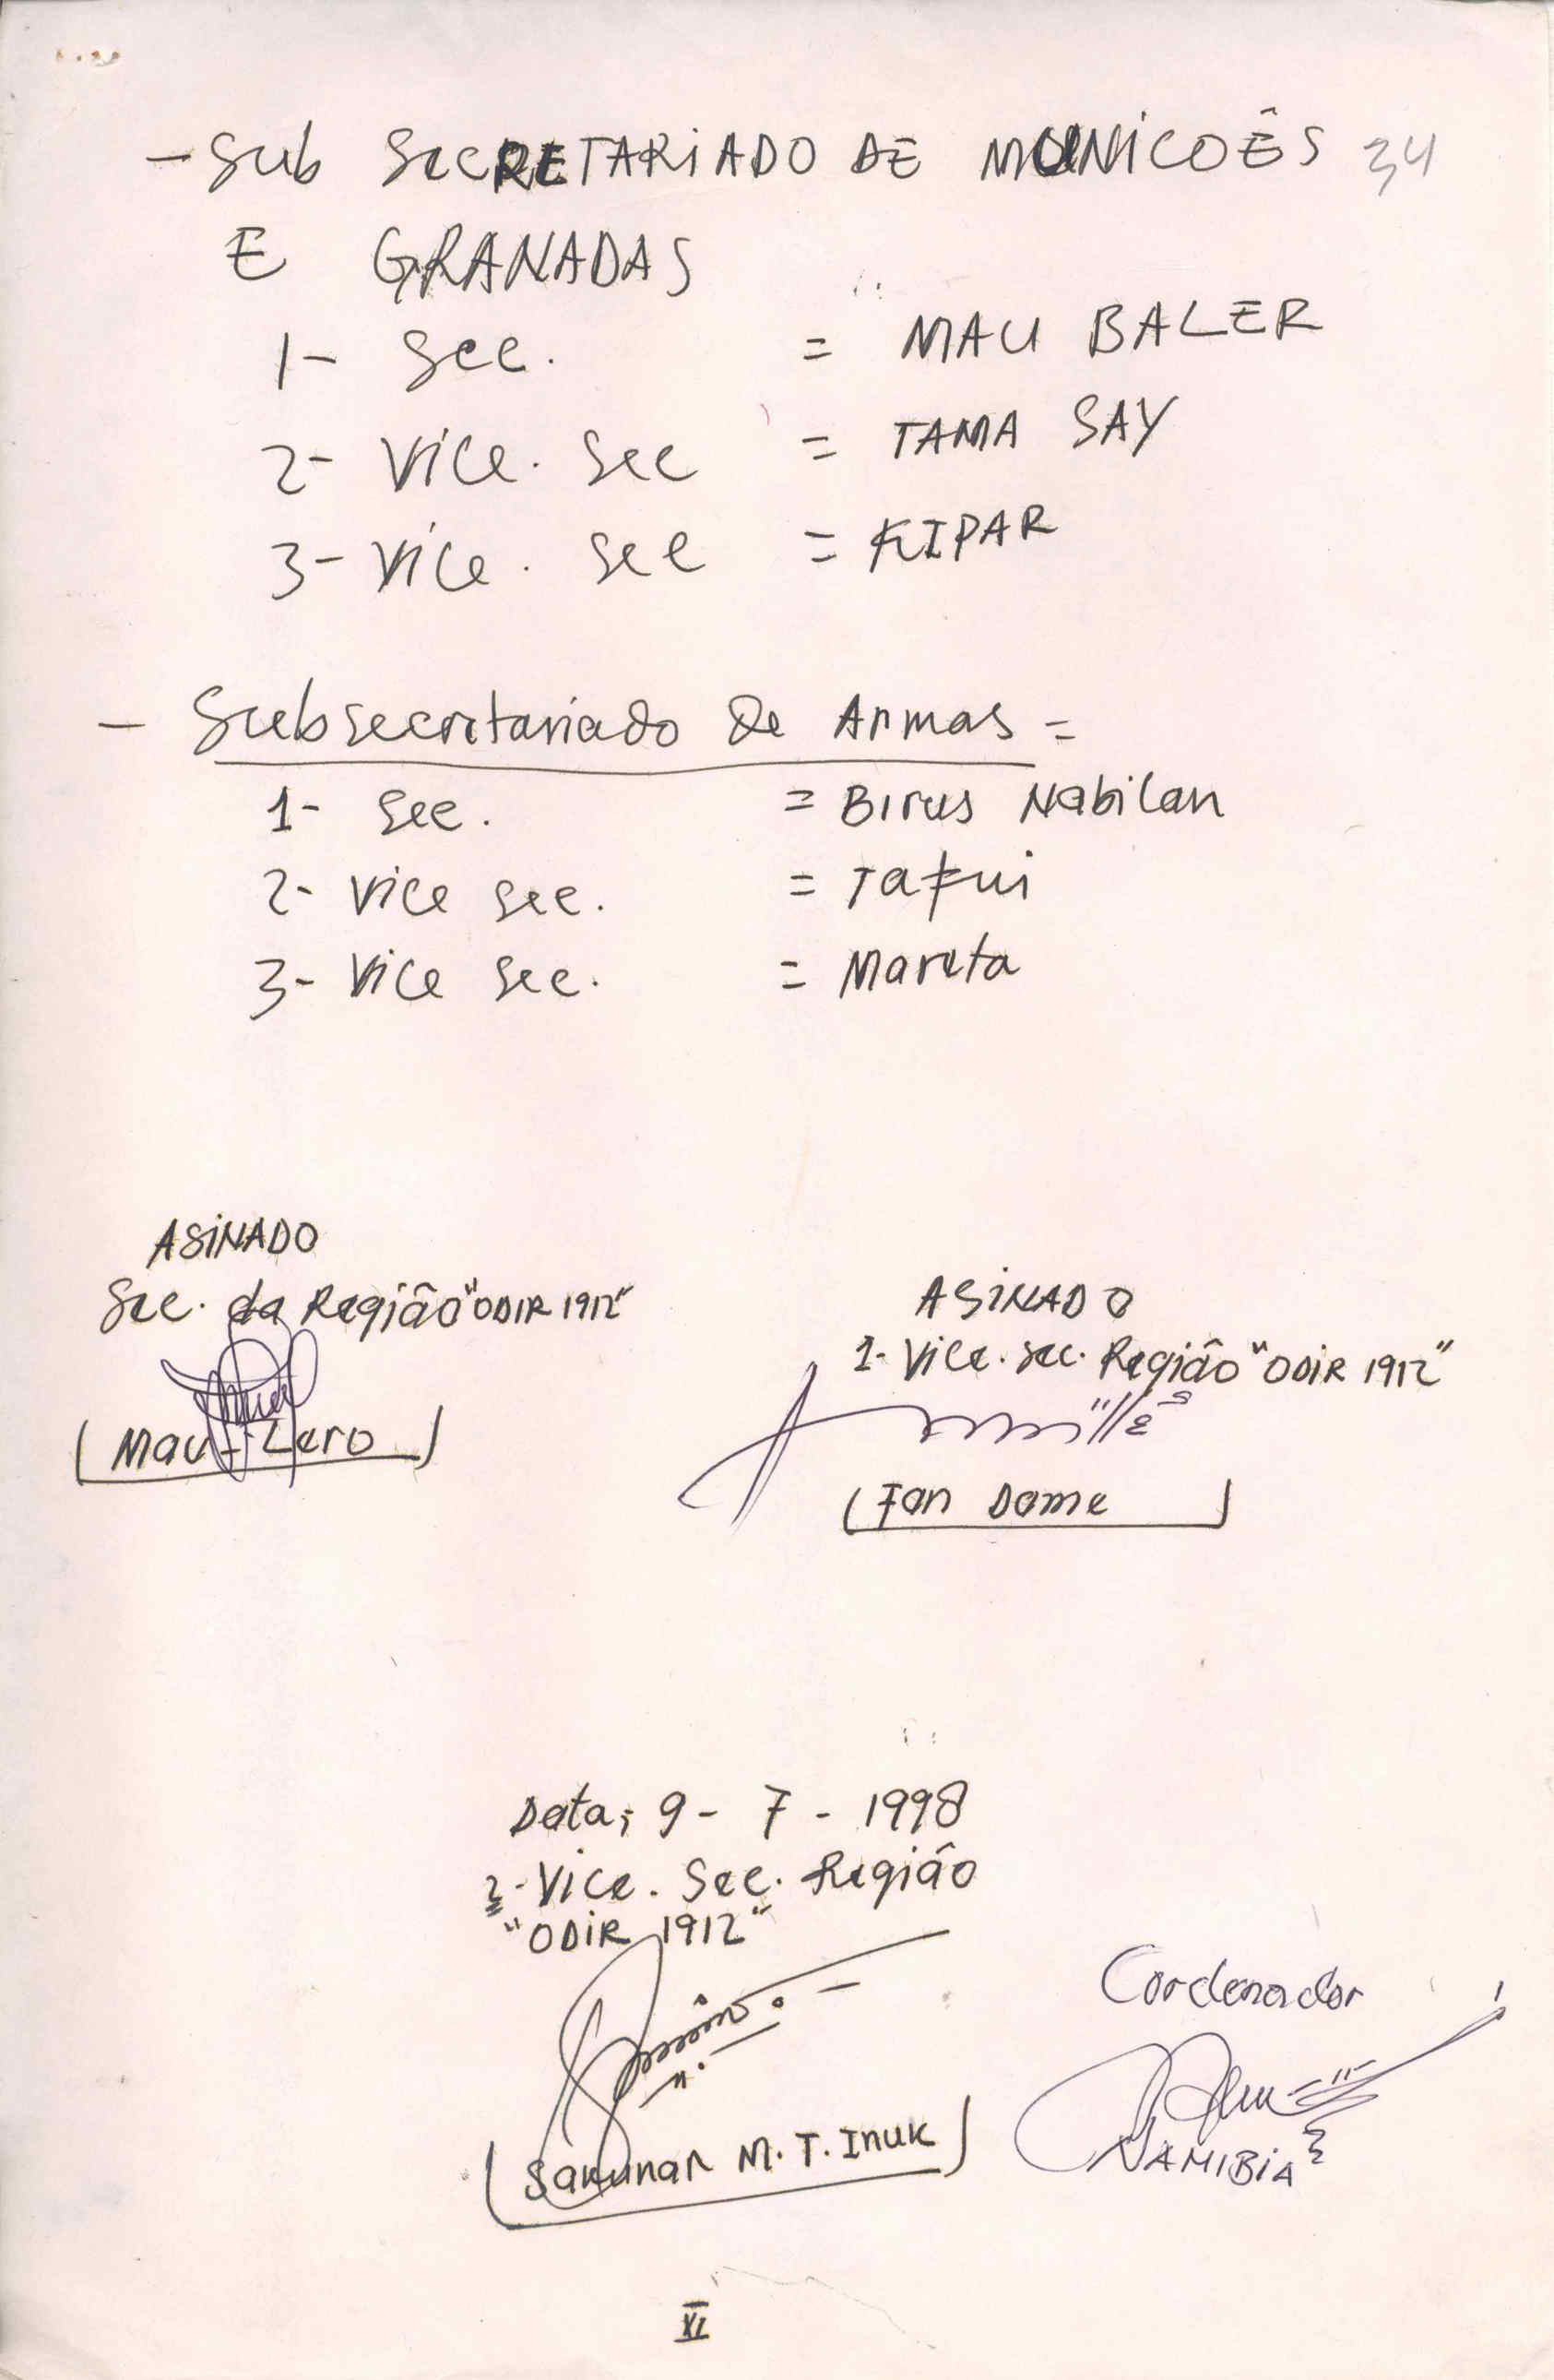 - Sub SecRETARiADO DE MUNiCOÊS 34
E GRANADAS
1- Sec. = MAU BALER
2- Vice. Sec = TAMA SAY
3- Vice. Sec = KIPAR
- Subsecretariado de Armas =
1- Sec. = Birus Nabilan
2- Vice Sec. = Tafui
3- Vice Sec. = Mareta
ASiNADO
Sec. da Região "ODIR 1912"
(Mau-Lero)
ASiNADO
1- Vice. sec. Região "ODiR 1912"
(Fan Dame)
Data; 9 - 7 - 1998
2- Vice. Sec. Região
"ODiR 1912"
(Sakunar M. T. Inuk)
Cordenador
NAMIBiA
XI